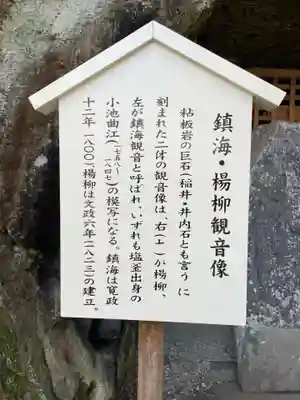 鎮海・楊柳観音像
粘板岩の巨石(稲井・井内石とも言う)に
刻まれた二体の観音像は、右(上)が楊柳、
左が鎮海観音と呼ばれ、いずれも塩釜出身の
小池曲江(一七五八～一八四七)の模写になる。鎮海は寛政
十二年(一八〇〇)、楊柳は文政六年(一八二三)の建立。